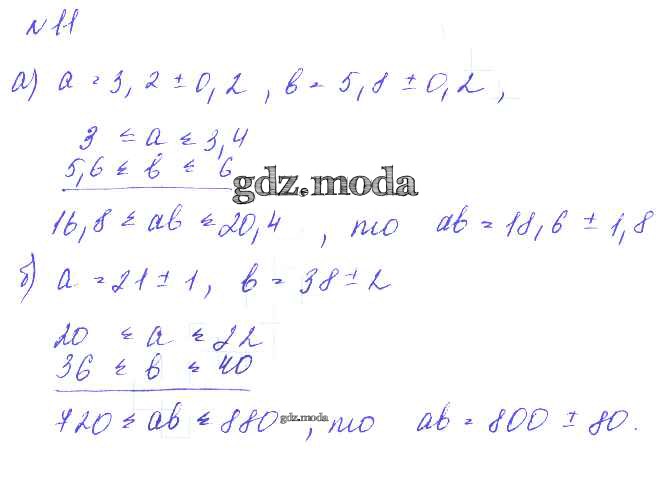 №11
а) a = 3,2 ± 0,2, b = 5,8 ± 0,2,
3 ≤ a ≤ 3,4
5,6 ≤ b ≤ 6
gdz.moda
16,8 ≤ ab ≤ 20,4, то ab = 18,6 ± 1,8
б) a = 21 ± 1, b = 38 ± 2
20 ≤ a ≤ 22
36 ≤ b ≤ 40
720 ≤ ab ≤ 880 gdz.moda, то ab = 800 ± 80.